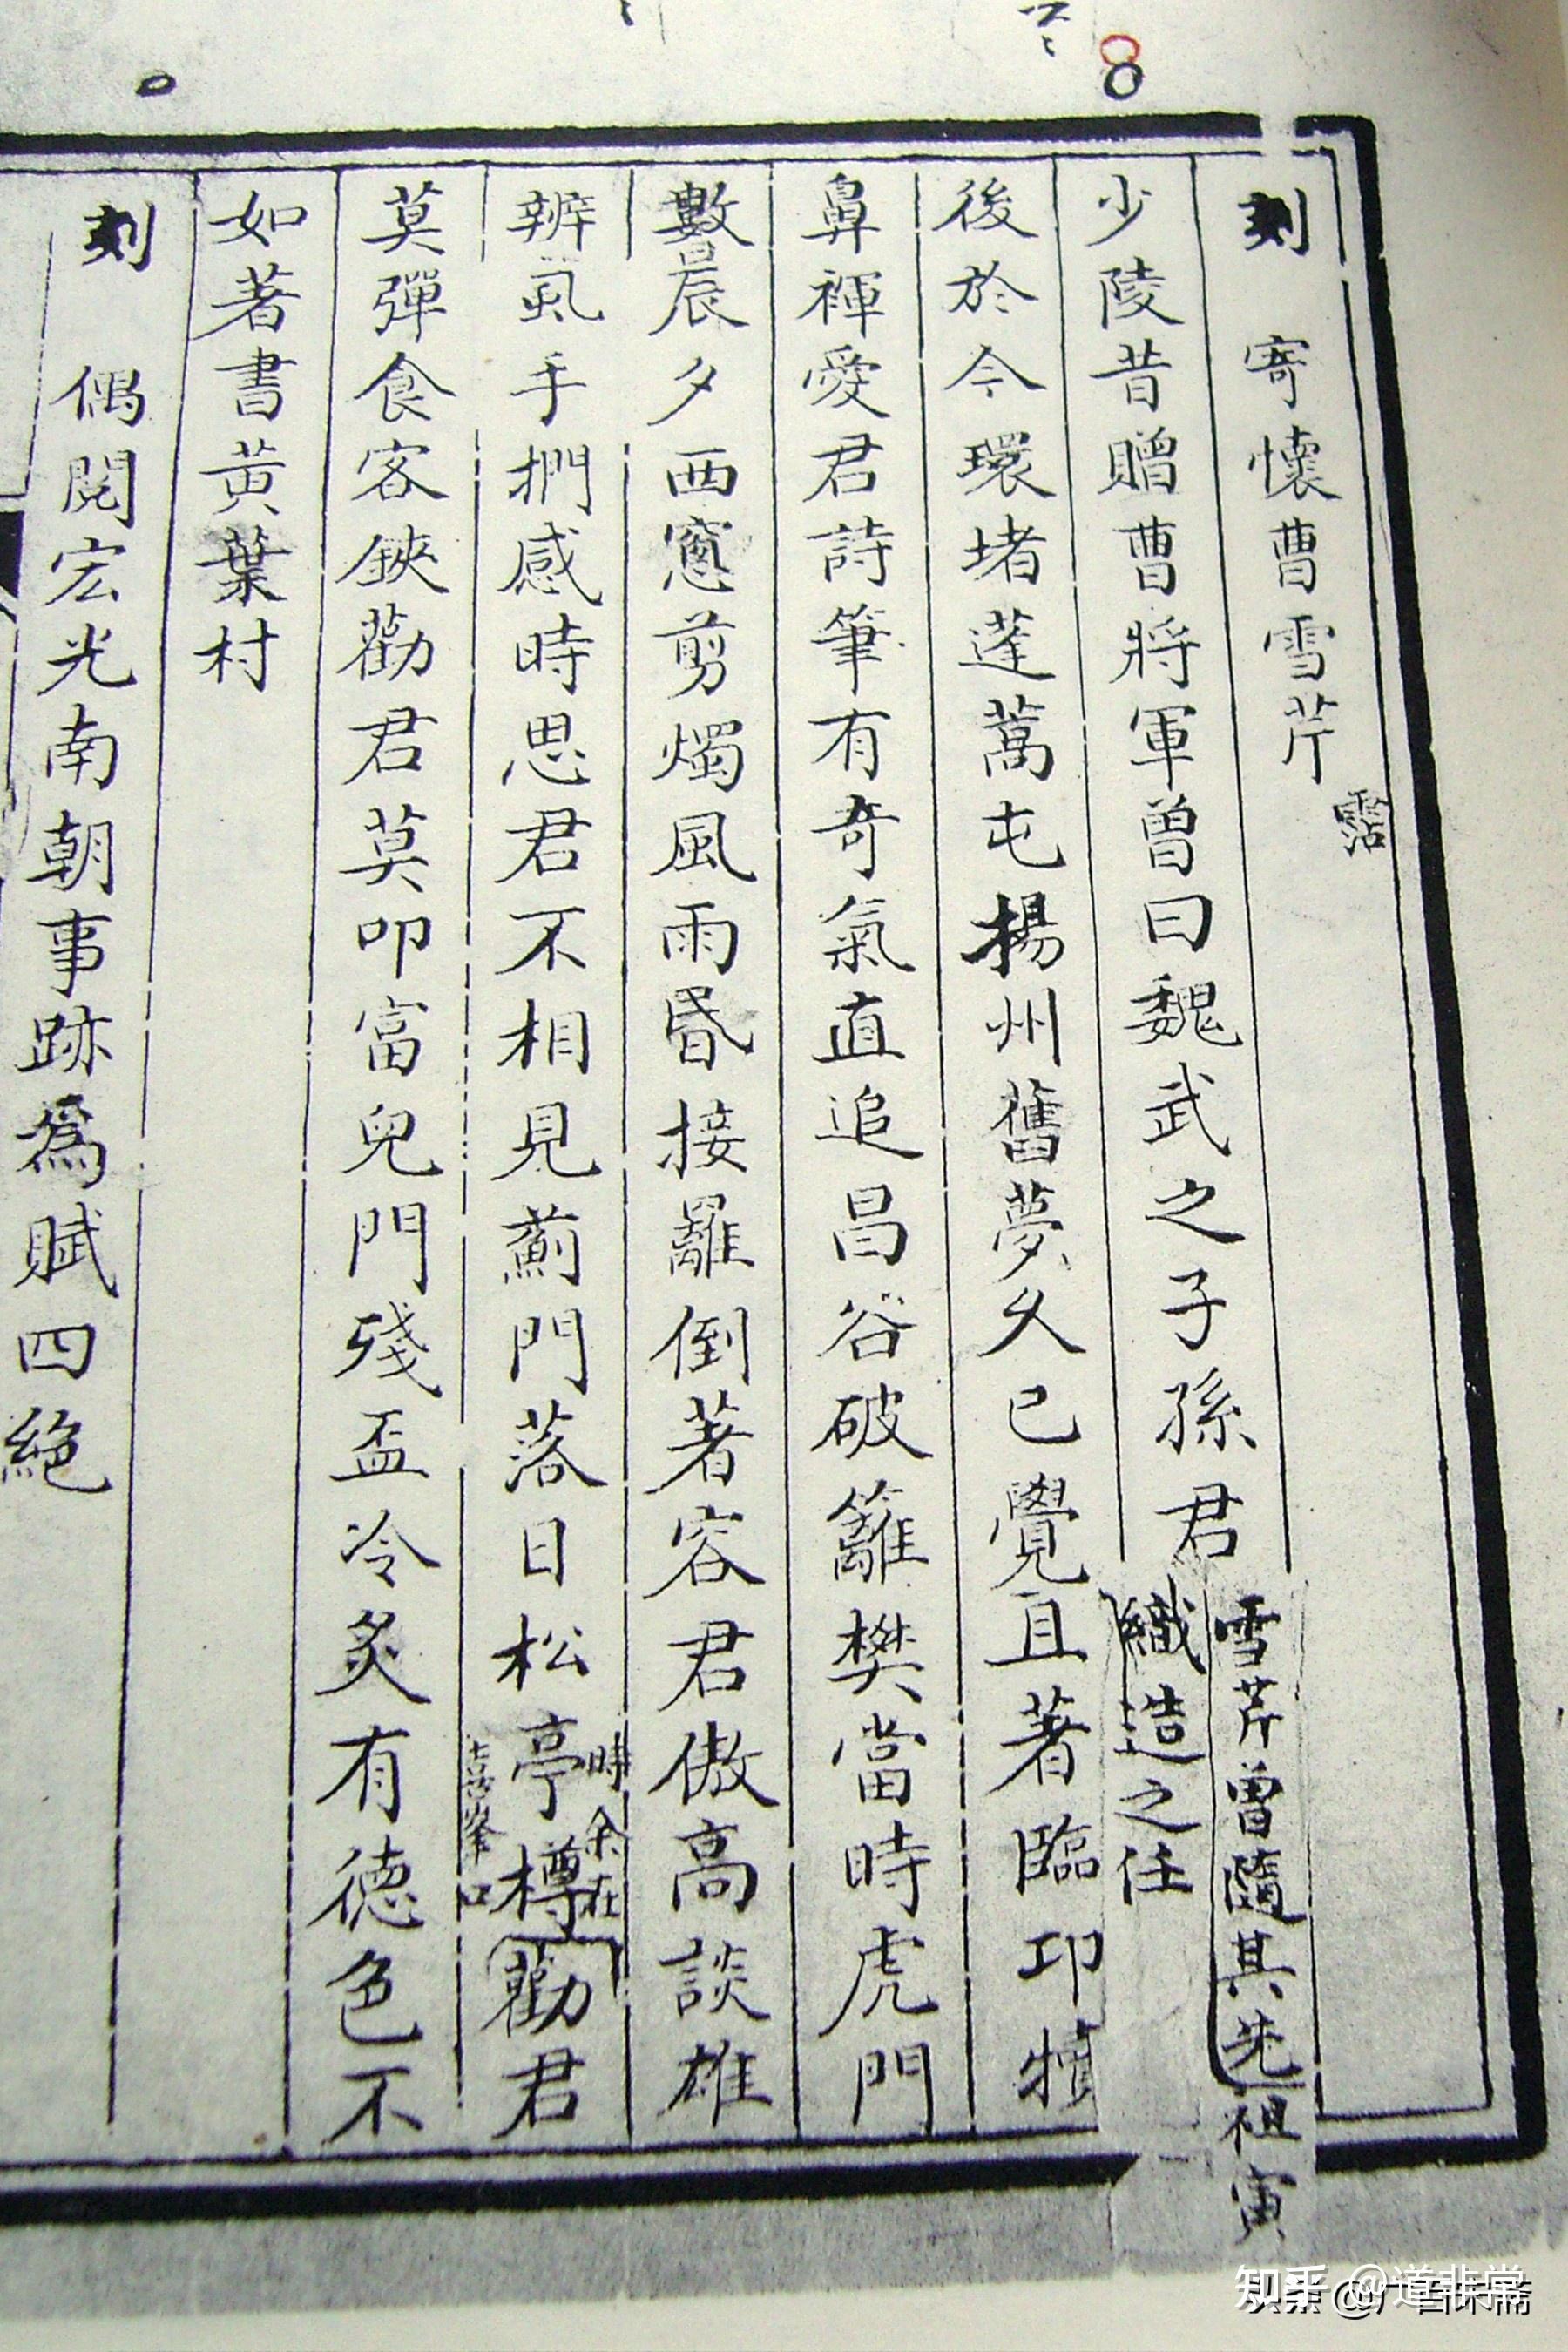 刻 寄懷曹雪芹 霑
少陵昔贈曹將軍曾曰魏武之子孫君
雪芹曾隨其先祖寅
織造之任
後於今環堵蓬蒿屯揚州舊夢久已覺且著臨邛犢
鼻褌愛君詩筆有奇氣直追昌谷破籬樊當時虎門
數晨夕西窻剪燭風雨昏接䍦倒著容君傲高談雄
辨虱手捫感時思君不相見薊門落日松亭樽勸君
時余在
喜峯口
莫彈食客鋏勸君莫叩富兒門殘盃冷炙有德色不
如著書黃葉村
刻 偶閱宏光南朝事跡爲賦四絕
知乎 @道非常